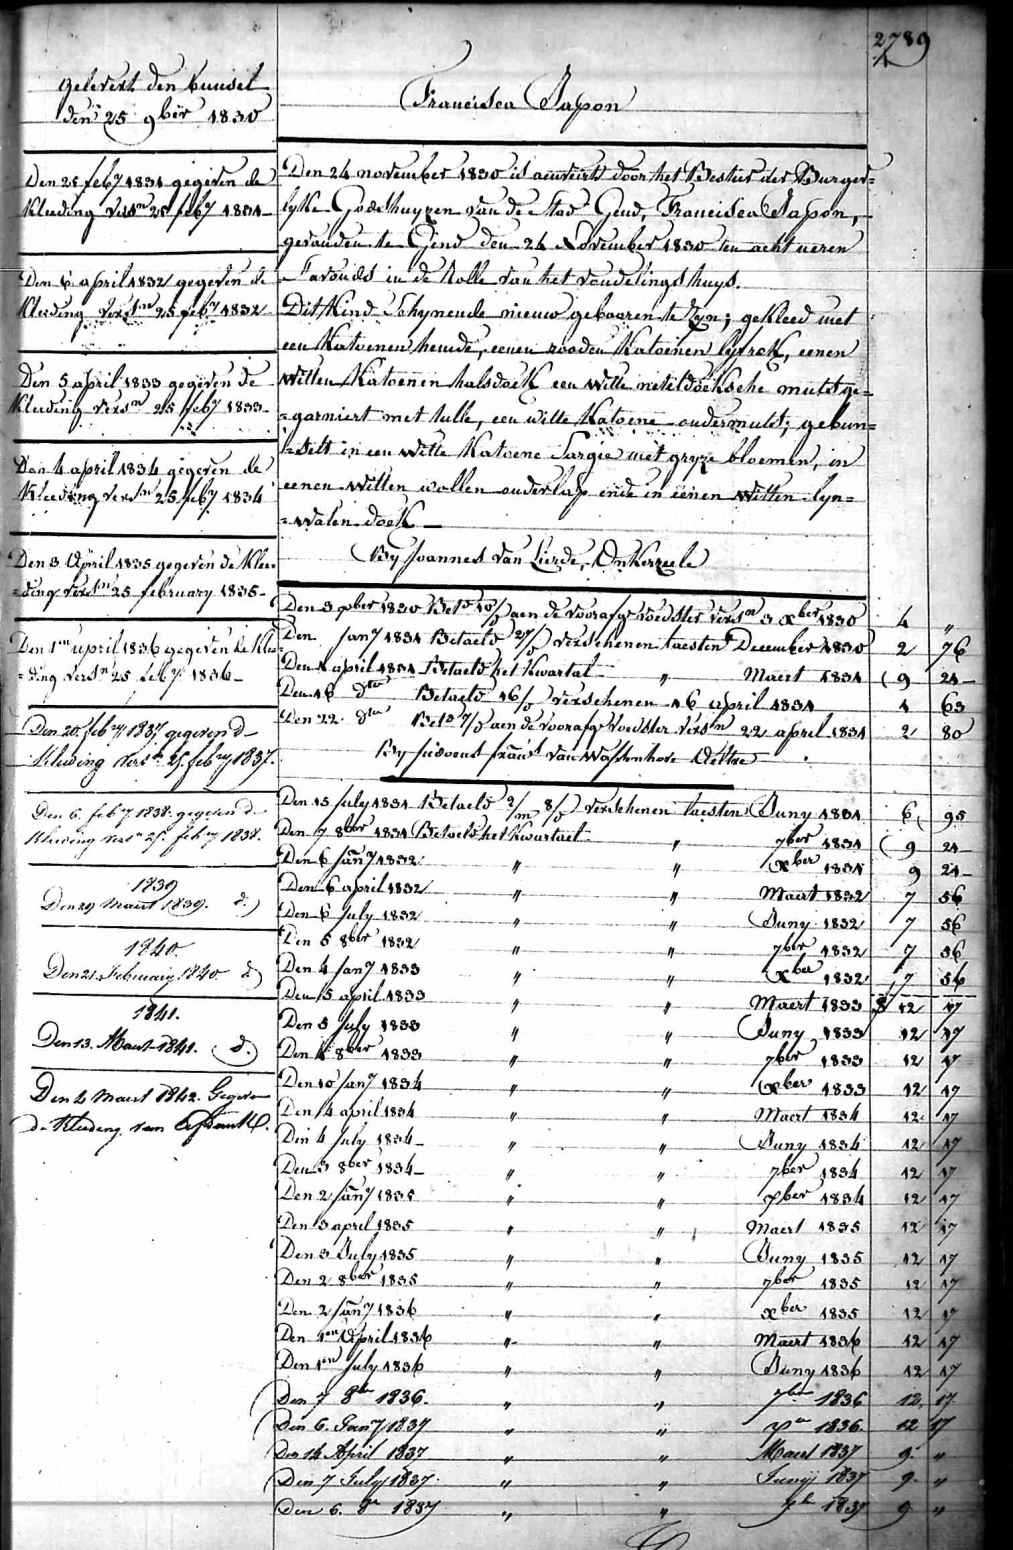 2789
gelevert den bunsel
den 25 9ber 1830
Den 25 feby 1831 gegeven de
kleeding versn 25 feby 1831
Den 6 april 1832 gegeven de
kleeding versn 25 feby 1832
Den 5 april 1833 gegeven de
kleeding versn 25 feby 1833
Den 4 april 1834 gegeven de
kleeding versn 25 feby 1834
Den 3 April 1835 gegeven de klee=
=ding versn 25 february 1835
Den 1en april 1836 gegeven de klee=
=ding versn 25 feby 1836
Den 20 febry 1837 gegeven d
kleeding vers 25 febry 1837.
Den 6 feby 1838 gegeven d
kleeding vers 25 feby 1838.
1839
Den 29 Maert 1839. d.)
1840.
Den 21 February 1840 d)
1841.
Den 13. Maert 1841. (d.)
Den 2 Maert 1842. Gegeven
de kleeding van
Francisca Sapon
Den 24 november 1830 is aenveirt door het Bestier der Burger=
lyke Godshuyzen van de Stad Gend, Francisca Sapon,
gevonden te Gend den 24 November 1830 ten acht ueren
s'avonds in de Rolle van het vondelingshuys.
Dit kind Schynende nieuw gebooren te zyn; gekleed met
een katoenen hemde, eenen rooden katoenen lyfrok, eenen
witten katoenen halsdoek een witte neteldoeksche muts ge=
=garniert met tulle, een witte katoene ondermuts; gebun=
=delt in een witte katoene Sargie met gryze bloemen, in
eenen witten wollen onderlap ende in eenen witten lyn=
=walen doek
By Joannes van Lierde, Onkerzeele
Den 3 xber 1830 Bets 10/ aen de voorafge voedster versn 3 xber 1830 4 "
Den Jany 1831 Betaeld 27/ verschenen laesten December 1830 2 76
Den 1 april 1831 Betaeld het kwartal " Maert 1831 9 24
Den 16 dto Betaeld 16/ verschenen 16 april 1831 1 63
Den 22 dto Bets 7/ aen de voorafge voedster versn 22 april 1831 2 80
By Judocus frans van Wassenhove Deltre
Den 15 July 1831 Betaeld 2/m 8/ verschenen laesten Juny 1831 6 95
Den 7 8ber 1831 Betaeld het kwartaet " 7ber 1831 9 24
Den 6 Jany 1832 " " xber 1831 9 24
Den 6 april 1832 " " Maert 1832 7 56
Den 6 July 1832 " " Juny 1832 7 56
Den 5 8ber 1832 " " 7ber 1832 7 56
Den 4 Jany 1833 " " xber 1832 7 56
Den 5 april 1833 " " Maert 1833 12 17
Den 5 July 1833 " " Juny 1833 12 17
Den 4 8ber 1833 " " 7ber 1833 12 17
Den 10 Jany 1834 " " xber 1833 12 17
Den 4 april 1834 " " Maert 1834 12 17
Den 4 July 1834 " " Juny 1834 12 17
Den 3 8ber 1834 " " 7ber 1834 12 17
Den 2 Jany 1835 " " xber 1834 12 17
Den 3 april 1835 " " Maert 1835 12 17
Den 3 July 1835 " " Juny 1835 12 17
Den 2 8ber 1835 " " 7ber 1835 12 17
Den 2 Jany 1836 " " xber 1835 12 17
Den 1en April 1836 " " Maert 1836 12 17
Den 1en July 1836 " " Juny 1836 12 17
Den 7 8br 1836. " " 7br 1836 12 17
Den 6 Jany 1837 " " 1836 12 17
Den 14 April 1837 " " Maert 1837 9 "
Den 7 July 1837. " " Juny 1837 9 "
Den 6. 8r 1837 " " 1837 9 "